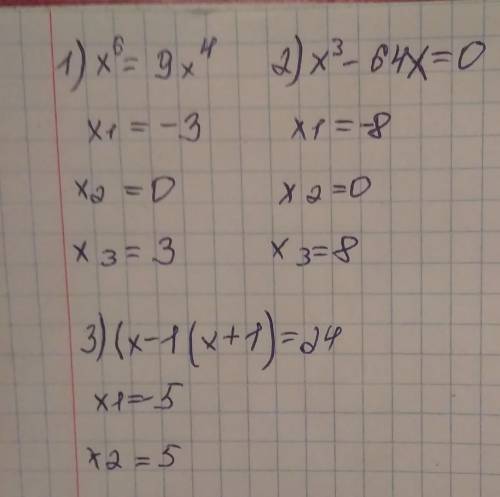 1) x⁶ = 9x⁴
x1 = -3
x2 = 0
x3 = 3
2) x³ - 64x = 0
x1 = -8
x2 = 0
x3 = 8
3) (x-1(x+1) = 24
x1 = -5
x2 = 5